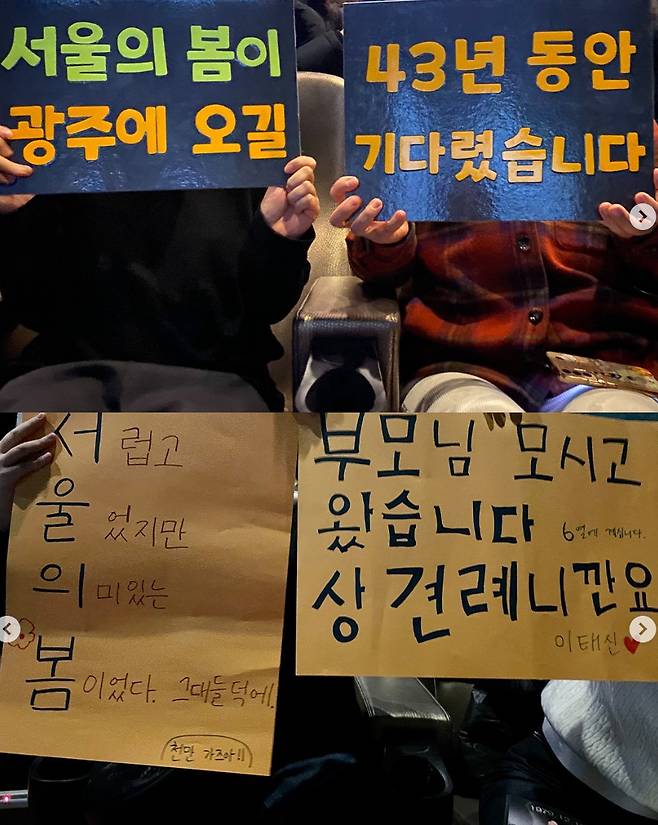 서울의 봄이
광주에 오길
43년 동안
기다렸습니다
서럽고
울었지만
의미있는
봄이었다. 그대들덕에.
천만 가즈아!!
부모님 모시고
왔습니다 6열에 계십니다.
상견례니깐요
이태신